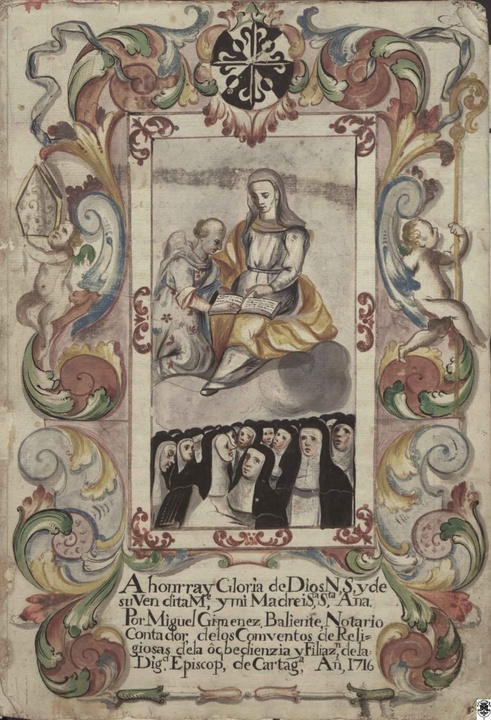 A honrra y Gloria de Dios N, S, y de
su Ven dita Mᵉ, y mi Madre i Sᵃ, Sᵗᵃ Ana.
Por Miguel Gimenez, Baliente, Notario
Contador, de los Comventos de Reli=
giosas de la ôbedienzia y Filiazⁿ, de la
Digᵈ, Episcop, de Cartagᵃ, Añ, 1716